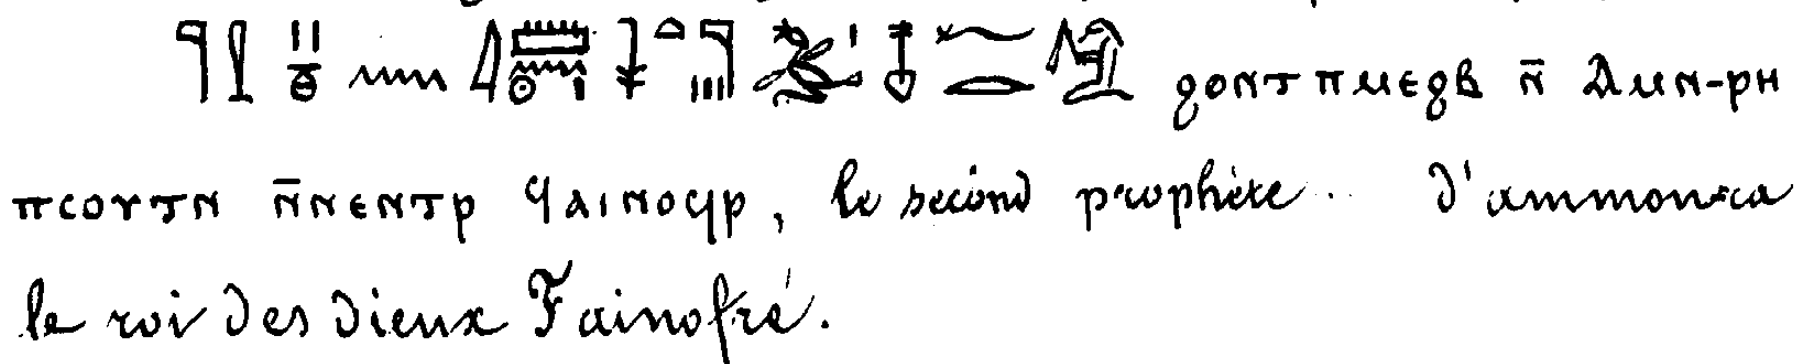 ϩⲟⲛⲧ ⲡⲙⲉϩⲃ ⲛ̄ Ⲁⲙⲛ-ⲣⲏ
ⲡⲥⲟⲩⲧⲛ ⲛ̄ⲛⲉⲛⲧⲣ ϥⲁⲓⲛⲟϥⲣ, le second prophète.. d'ammon-ra
le roi des dieux Fainofré.